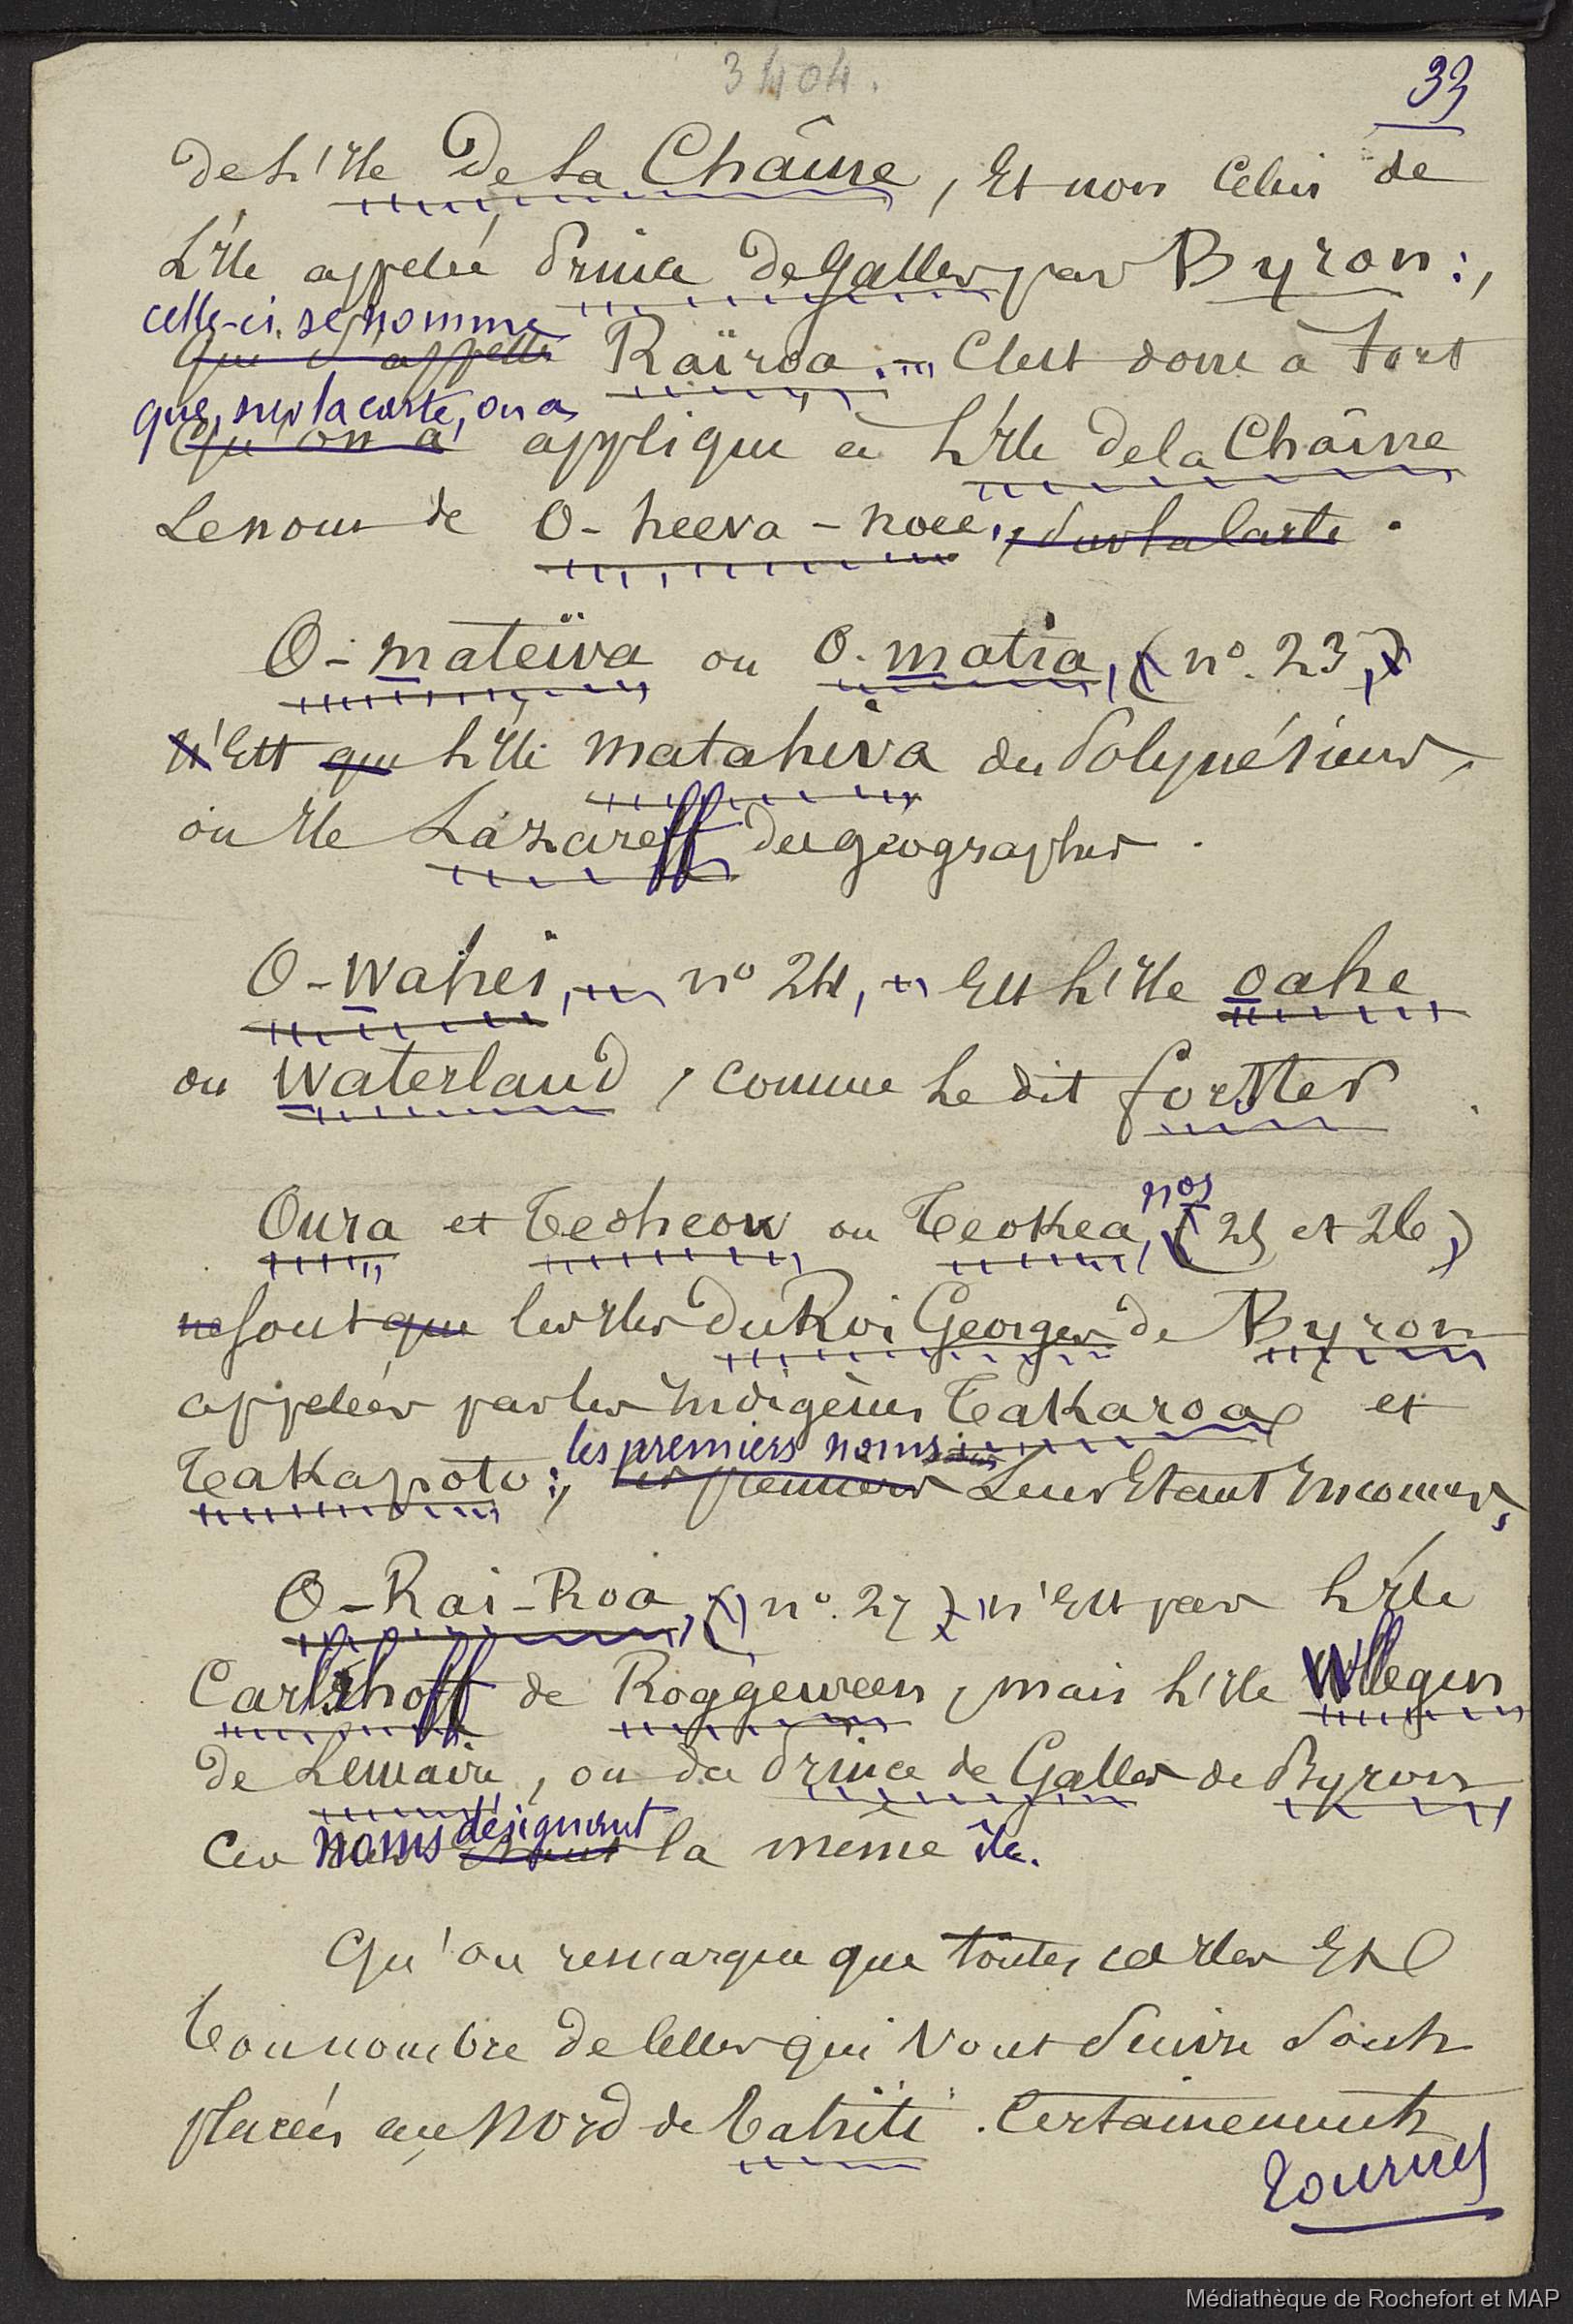 3404.
33
de l'île De la Chaîne, et non celui de
l'île appelée Prince de Galles par Byron :,
celle-ci se nomme
qui s'appelle Raïroa. — C'est donc à tort
que, sur la carte, on a
qu'on a appliqué à l'île de la Chaîne
le nom de O-heeva-noee, sur la carte.
O-mateïva ou O-matia, (n° 23,)
n'est que l'île matahiva des Polynésiens,
ou île Lazareff des géographes.
O-Wahei, — n° 24, — est l'île oahe
ou Waterland, comme le dit forster
nos
Oura et Teoheow ou Teokea, (25 et 26,)
ne sont que les îles du Roi Georges de Byron
appelées par les indigènes Takaroa et
les premiers noms
Takapoto :, les premiers leur étant inconnus,
O-Rai-Roa, (n° 27) n'est pas l'île
Carlshoff de Roggeween, mais l'île Vllegen
de Lemaire, ou du Prince de Galles de Byron
désignent
Ces noms la même île.
Qu'on remarque que toutes ces îles et
bon nombre de celles qui vont suivre sont
placées au Nord de Tahiti. Certainement
Tournez
Médiathèque de Rochefort et MAP